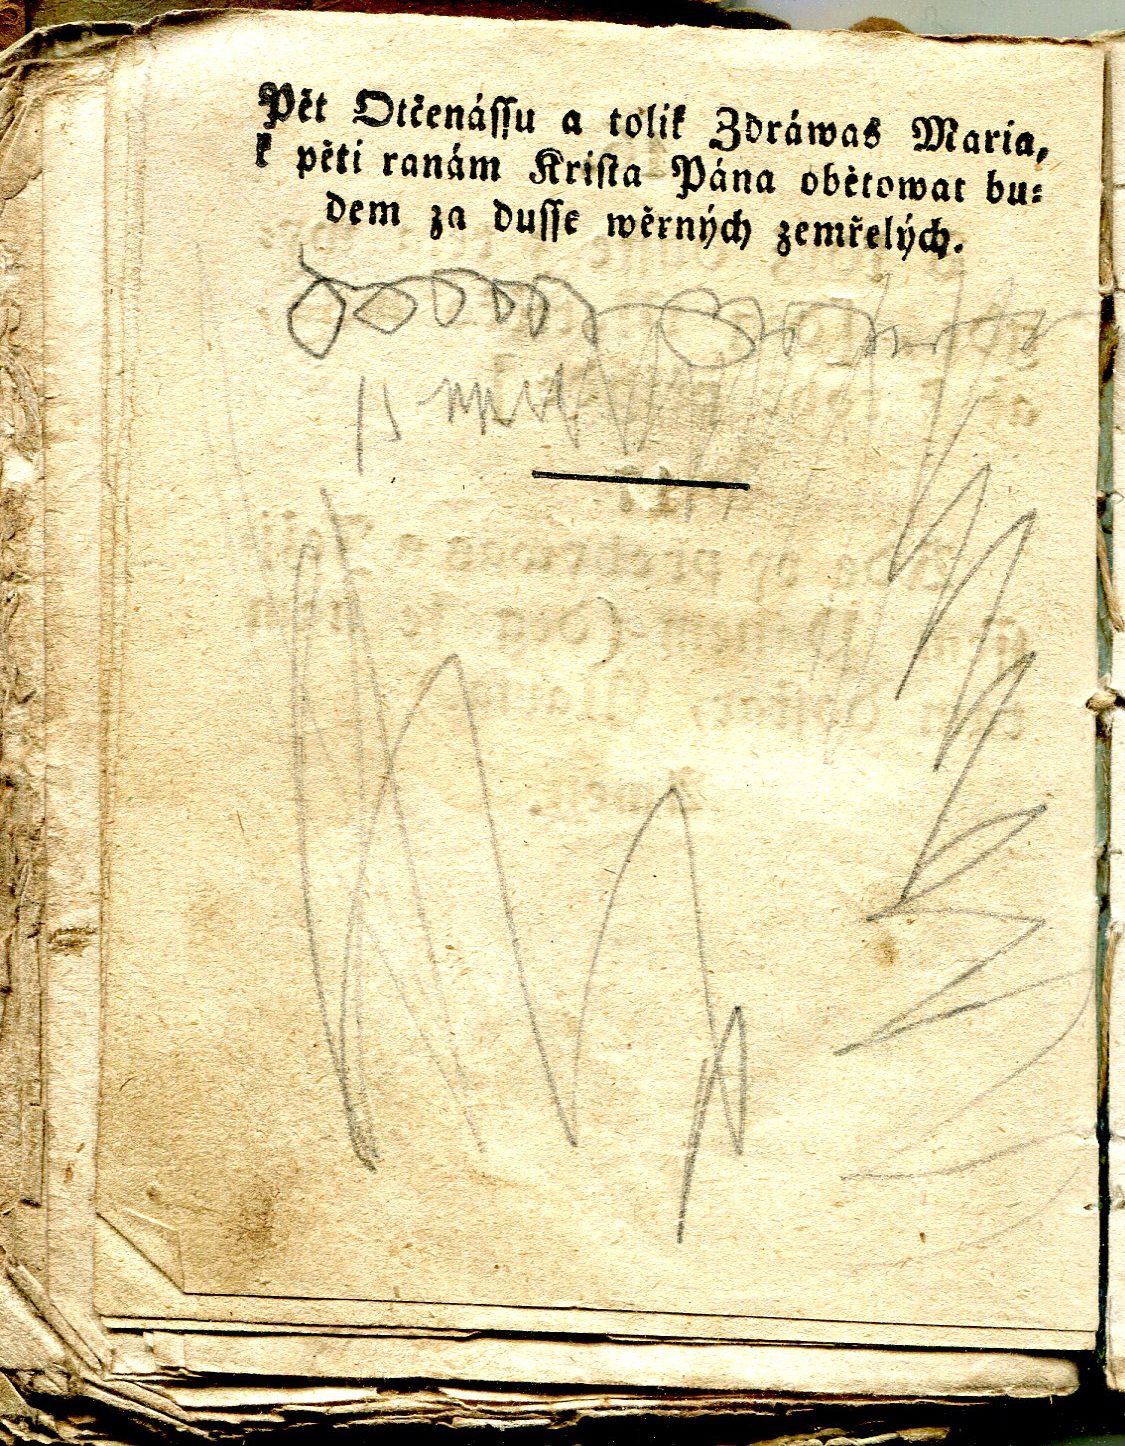 Pět Otčenássu a tolik Zdráwas Maria,
k pěti ranám Krista Pána obětowat bu⸗
dem za dusse wěrných zemřelých.